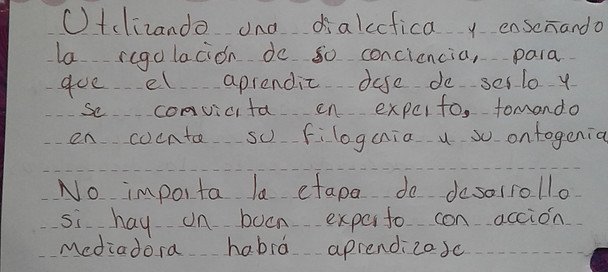 Utilizando una dialectica y enseñando
la regulación de su conciencia, para
que el aprendiz deje de serlo y
se convierta en experto, tomando
en cuenta su filogenia y su ontogenia
No importa la etapa de desarrollo
si hay un buen experto con acción
Mediadora habrá aprendizaje